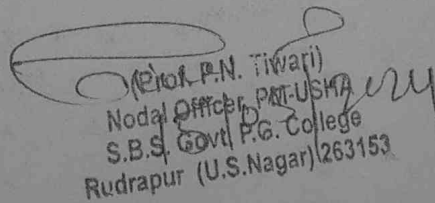 (Prof. P.N. Tiwari)
Nodal Officer, PM-USHA
S.B.S. Govt. P.G. College
Rudrapur (U.S.Nagar) 263153